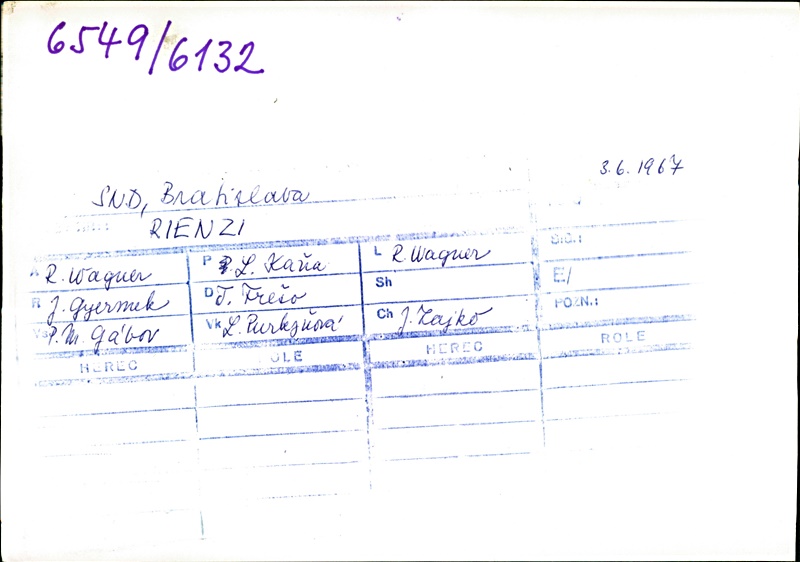 6549/6132
3.6.1967
SND, Bratislava
RIENZI
A R. Wagner P L. Kaňa L R. Wagner SIG.:
R J. Gyermek D T. Frešo Sh E/
P. M. Gábor Vk L. Purkyňová Ch J. Zajko POZN.:
HEREC ROLE HEREC ROLE